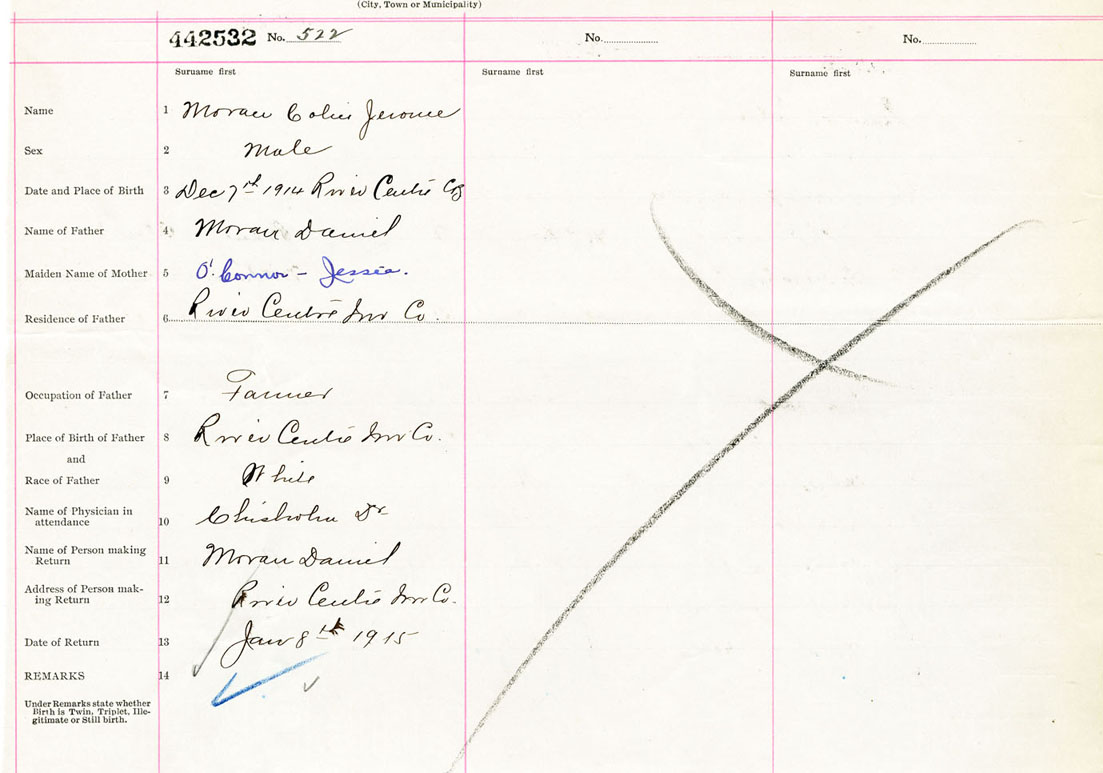 (City, Town or Municipality)
442532 No. 522 No. No.
Surname first Surname first Surname first
Name 1 Moran Colin Jerome
Sex 2 Male
Date and Place of Birth 3 Dec 7th 1914 River Centre CB
Name of Father 4 Moran Daniel
Maiden Name of Mother 5 O'Connor - Jessie.
Residence of Father 6 River Centre Inv Co.
Occupation of Father 7 Farmer
Place of Birth of Father 8 River Centre Inv Co.
and
Race of Father 9 White
Name of Physician in
attendance 10 Chisholm Dr
Name of Person making
Return 11 Moran Daniel
Address of Person mak-
ing Return 12 River Centre Inv Co.
Date of Return 13 Jan 8th 1915
REMARKS 14
Under Remarks state whether
Birth is Twin, Triplet, Ille-
gitimate or Still birth.